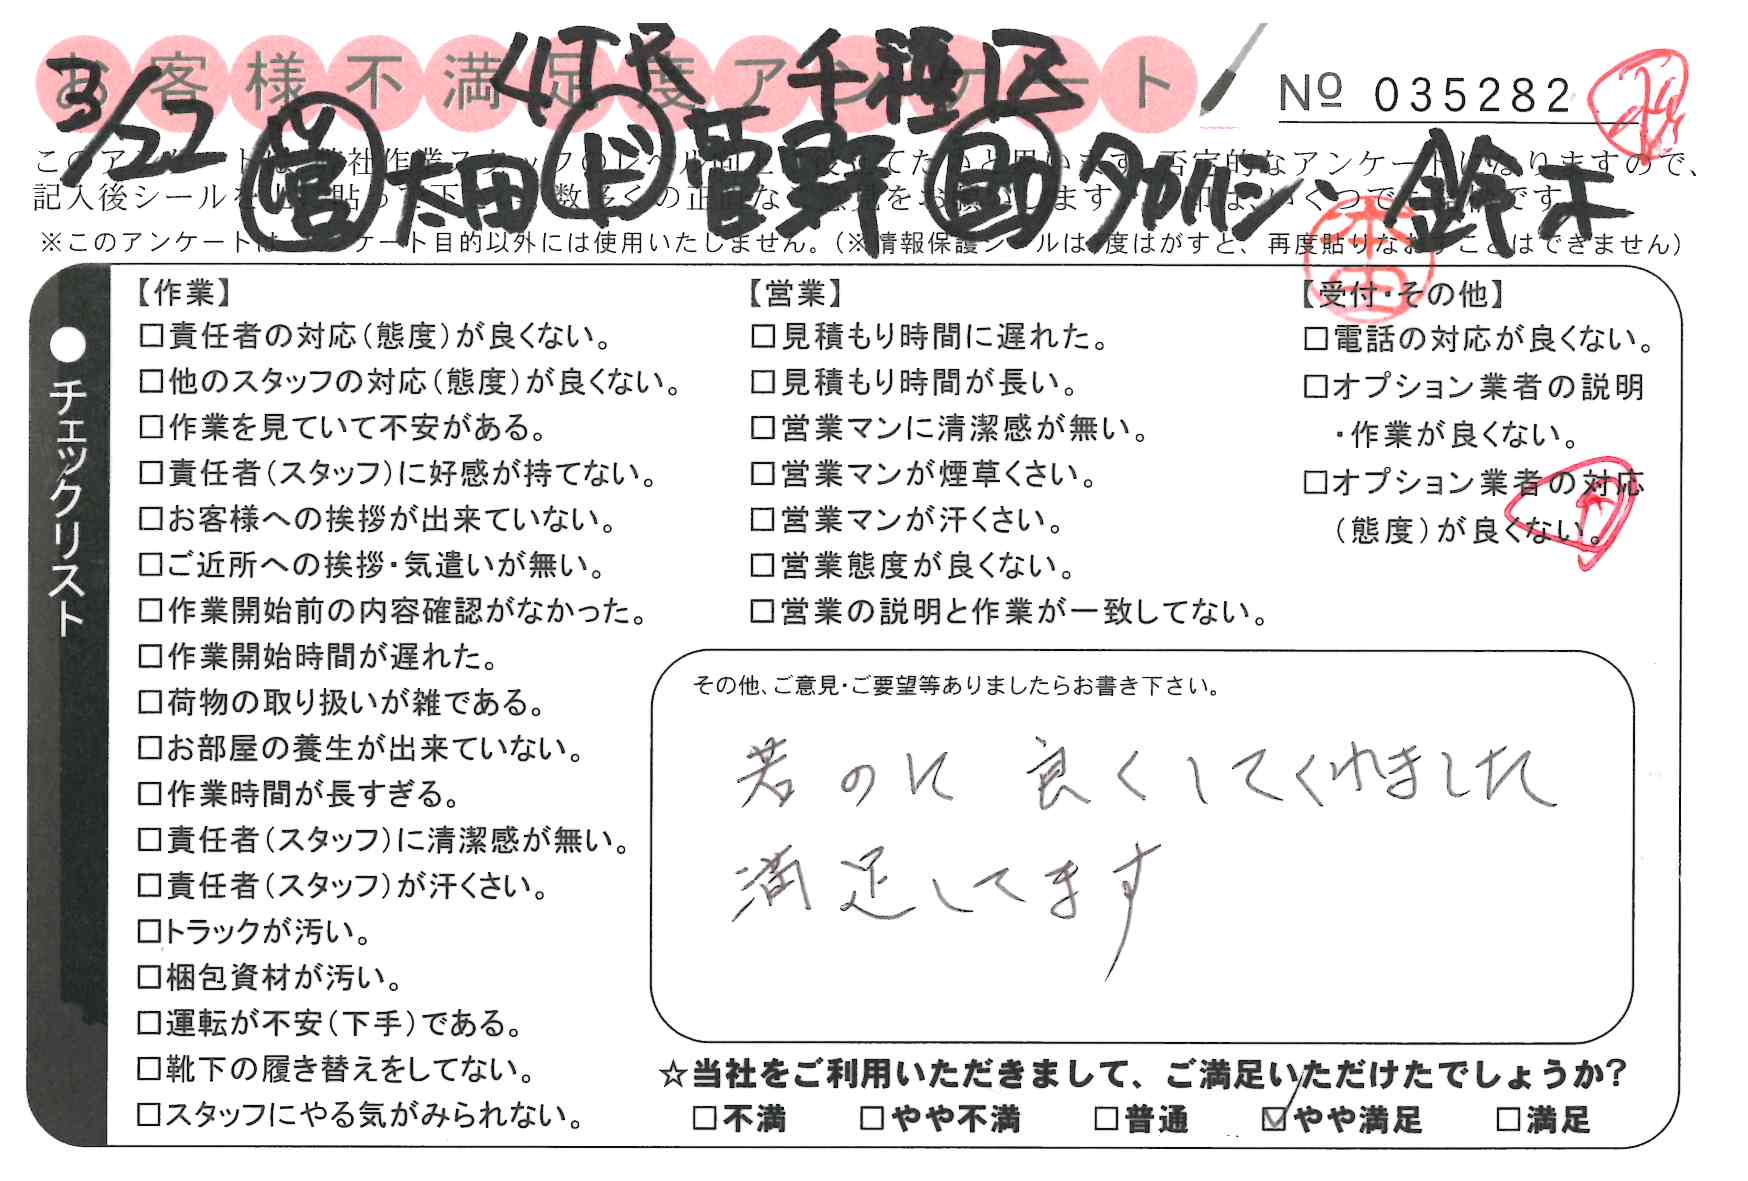 お客様不満足度アンケート
4TR 千種区
No 035282
3/22 営 太田 ド 菅野 助 タカハシ 鈴木
※このアンケートは、アンケート目的以外には使用いたしません。(※情報保護シールは1度はがすと、再度貼りなおすことはできません)
●チェックリスト
【作業】
□責任者の対応(態度)が良くない。
□他のスタッフの対応(態度)が良くない。
□作業を見ていて不安がある。
□責任者(スタッフ)に好感が持てない。
□お客様への挨拶が出来ていない。
□ご近所への挨拶・気遣いが無い。
□作業開始前の内容確認がなかった。
□作業開始時間が遅れた。
□荷物の取り扱いが雑である。
□お部屋の養生が出来ていない。
□作業時間が長すぎる。
□責任者(スタッフ)に清潔感が無い。
□責任者(スタッフ)が汗くさい。
□トラックが汚い。
□梱包資材が汚い。
□運転が不安(下手)である。
□靴下の履き替えをしてない。
□スタッフにやる気がみられない。
【営業】
□見積もり時間に遅れた。
□見積もり時間が長い。
□営業マンに清潔感が無い。
□営業マンが煙草くさい。
□営業マンが汗くさい。
□営業態度が良くない。
□営業の説明と作業が一致してない。
【受付・その他】
□電話の対応が良くない。
□オプション業者の説明
・作業が良くない。
□オプション業者の対応
(態度)が良くない。
その他、ご意見・ご要望等ありましたらお書き下さい。
若のに 良くしてくれました
満足してます
☆当社をご利用いただきまして、ご満足いただけたでしょうか?
□不満 □やや不満 □普通 ☑やや満足 □満足